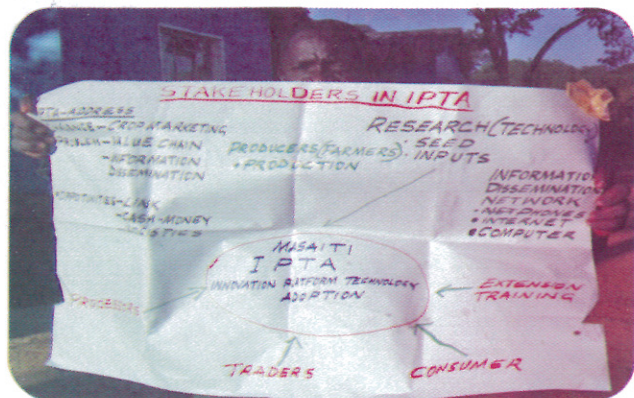 STAKEHOLDERS IN IPTA
ADDRESS
CROP MARKETING
PROBLEM - VALUE CHAIN
- INFORMATION
DISSEMINATION
- LINK
- CASH - MONEY
PRODUCERS (FARMERS)
• PRODUCTION
RESEARCH (TECHNOLOGY)
• SEED
INPUTS
INFORMATION
DISSEMINATION
NETWORK
• NET PHONES
• INTERNET
• COMPUTER
MASAITI
IPTA
INNOVATION PLATFORM TECHNOLOGY
ADOPTION
EXTENSION
TRAINING
TRADERS
CONSUMER